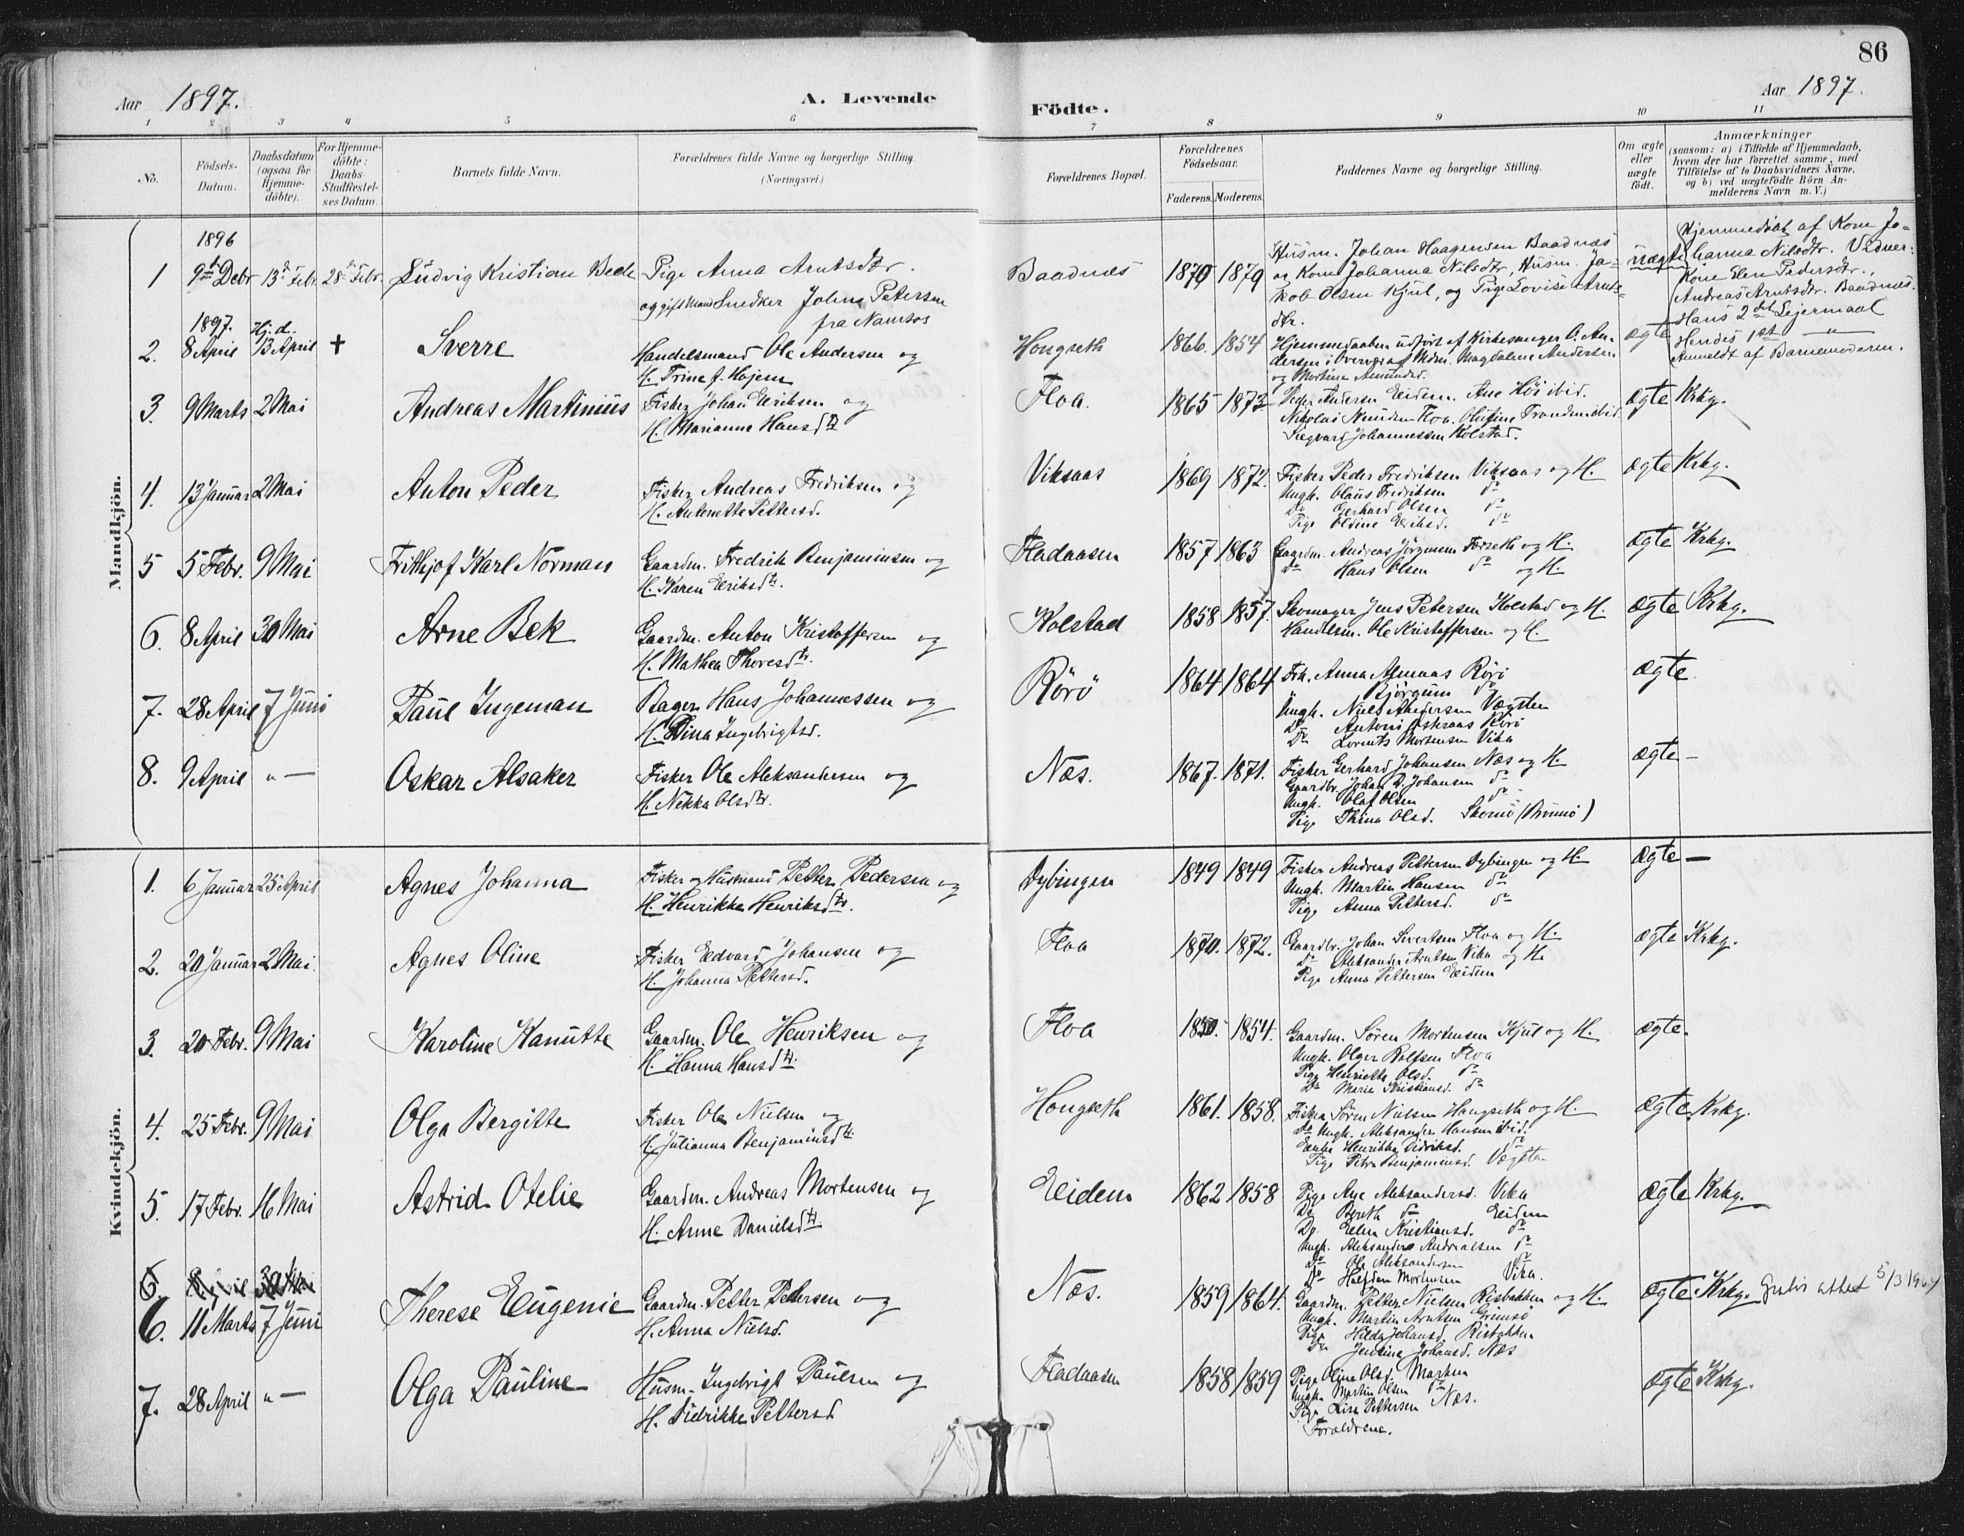 86
Aar 1897.
A. Levende
Födte.
Aar 1897.
1 2 3 4 5 6 7 8 9 10 11
No.
Födsels-Datum.
Daabsdatum (ogsaa for Hjemmedöbte).
For Hjemmedöbte: Daabs-Stadfæstelses Datum.
Barnets fulde Navn.
Forældrenes fulde Navne og borgerlige Stilling.
(Næringsvei.)
Forældrenes Bopæl.
Forældrenes Födselsaar.
Faderens. Moderens.
Faddernes Navne og borgerlige Stilling.
Om ægte eller uægte födt.
Anmærkninger
(saasom: a) i Tilfælde af Hjemmedaab, hvem der har forrettet samme, med Tilföielse af to Daabsvidners Navne, og b) ved uægtefödte Börn Anmelderens Navn m. V.)
Mandkjön.
1896
1 9t Debr 13de Febr. 28de Febr. Ludvig Kristian Bede
Pige Anna Arntsdtr.
og gift Mand Snedker Johns Petersen
fra Namsos
Baadnæs 1870 1879
Husm. Johan Haagensen Baadnæs
og Kone Johanna Nilsdtr, Husm. Ja-
kob Olsen Kjul, og Pige Lovise Arnts-
dtr.
uægte
Hjemmedöbt af Kone Jo-
hanna Nilsdtr. Vidner:
Kone Elen Pedersdtr.,
Andreas Arntsdtr. Baadnæs.
Hans 2det Leiermaal
Hendes 1st —"—
Anmeldt af Barnemoderen.
1897.
2. 8 April Hj.d. 13 April + Sverre
Handelsmand Ole Andersen og
H. Trine f. Hojem
Hongseth 1866. 1854
Hjemmedaaben udfört af Kirkesanger O. An-
dersen i Overvær af Mdm. Magdalene Andersen
og Mortine Amundsd.
ægte
3. 9 Marts 2 Mai Andreas Martinius
Fisker Johan Eriksen og
H. Marianna Hansdtr
Floa. 1865 1873
Pige Andersen Eidem. Ane Höi ibid.
Nikolai Knudsen Floa. Olufine Trondsen ibid.
Sigvard Johannessen Kolstad.
ægte Krkg.
4. 13 Januar 2 Mai Anton Peder
Fisker Andreas Fredriksen og
H. Antonette Pettersd.
Viksaas 1869 1872.
Fisker Peder Fredriksen Viksaas og H.
Ungk. Olaus Fredriksen do
Do Gerhard Olsen do
Pige Oldine Eriksd. do
ægte Krkg.
5 5 Febr. 9 Mai Frithjof Karl Norman
Gaardm. Fredrik Benjaminsen og
H. Karen Eriksdtr.
Fladaasen 1857 1863
Gaardm. Andreas Jörgensen Forseth og H.
Do Hans Olsen do og H.
ægte Krkg.
6. 8 April 30 Mai Arne Bek
Gaardm. Anton Kristoffersen og
H. Mathea Thoresdtr.
Kolstad 1858 1857.
Skomager Jens Petersen Kolstad og H.
Handlesm. Ole Kristoffersen og H.
ægte Krkg.
7. 28 April 7 Juni Paul Ingeman
Bager Hans Johannessen og
H. Dina Ingebrigtsd.
Rörö 1864 1864
Frk. Anna Rörö
Bjørgum do
Ungk. Niels Andersen Vægsten
Do Antoni Rörö
Do Lorents Mortensen Vika
ægte.
8. 9 April " — Oskar Alsaker
Fisker Ole Aleksandersen og
H. Nekka Olsdtr.
Næs. 1867. 1871.
Fisker Gerhard Johansen Næs og H.
Gaardbr. Johan P. Johansen do
Ungk. Olaf Olsen do
Pige Thrina Olsd. Skomö (Brönnö)
ægte —
Kvindekjön.
1. 6 Januar 25 April Agnes Johanna
Fisker og Husmand Petter Pedersen og
H. Henrikke Henriksdtr.
Dybingen 1849 1849
Fisker Andreas Pettersen Dybingen og H.
Ungk. Martin Hansen do
Pige Anna Pettersd. do
ægte —
2. 20 Januar 2 Mai. Agnes Oline
Fisker Edvard Johansen og
H. Johanna Pettersd.
Floa 1870. 1872.
Gaardbr. Johan Sivertsen Floa og H.
Do Aleksander Arntsen Vika og H.
Pige Anna Pettersen Eidem
ægte Krkg.
3. 20 Febr. 9 Mai Karoline Kanutte
Gaardm. Ole Henriksen og
H. Hanna Hansdtr.
Floa 1850. 1854.
Gaardm. Sören Mortensen Kjul og H.
Ungk. Olger Rolfsen Floa
Pige Henriette Olsd. do
Do Marie Kristiansd. do
ægte.
4. 25 Febr. 9 Mai Olga Bergitte
Fisker Ole Nielsen og
H. Julianna Benjaminsdtr
Hongseth 1861. 1858.
Fisker Sören Nielsen Hongseth og H.
Do Ungk. Aleksander Hansen ibid.
Enke Henrikke Didriksd. do
Pige Petra Benjaminsd. Vægsta
ægte Krkg.
5. 17 Febr. 16 Mai Astrid Otelie
Gaardm. Andreas Mortensen og
H. Anne Danielsdtr
Eidem 1862 1858
Pige Aye Aleksandersd. Vika
Do Bereth do Eidem
Do Elen Kristiansd. do
Ungk. Aleksander Andreassen do
Do Ole Aleksandersen do
Do Halfdan Mortensen Vika.
ægte Krkg.
6. 8 April 30 Mai
6. 11 Marts 7 Juni Therese Eugenie
Gaardm. Petter Petersen og
H. Anna Nielsd.
Næs. 1859 1864.
Gaardm. Petter Nielsen Risbakken og H.
Ungk. Martin Arntsen Grimsö
Pige Hilda Johansd. Risbakken
Do Jensina Johansd. Næs
ægte Krkg. Gratis attest 5/3 1904
7. 28 April " — Olga Pauline
Husm. Ingebrigt Paulsen og
H. Didrikke Pettersd
Fladaasen 1858 1859
Pige Oline Olsd. Marken
Ungk. Martin Olsen do
Pige Lise Pettersen Næs.
Forældrene.
ægte Krkg.